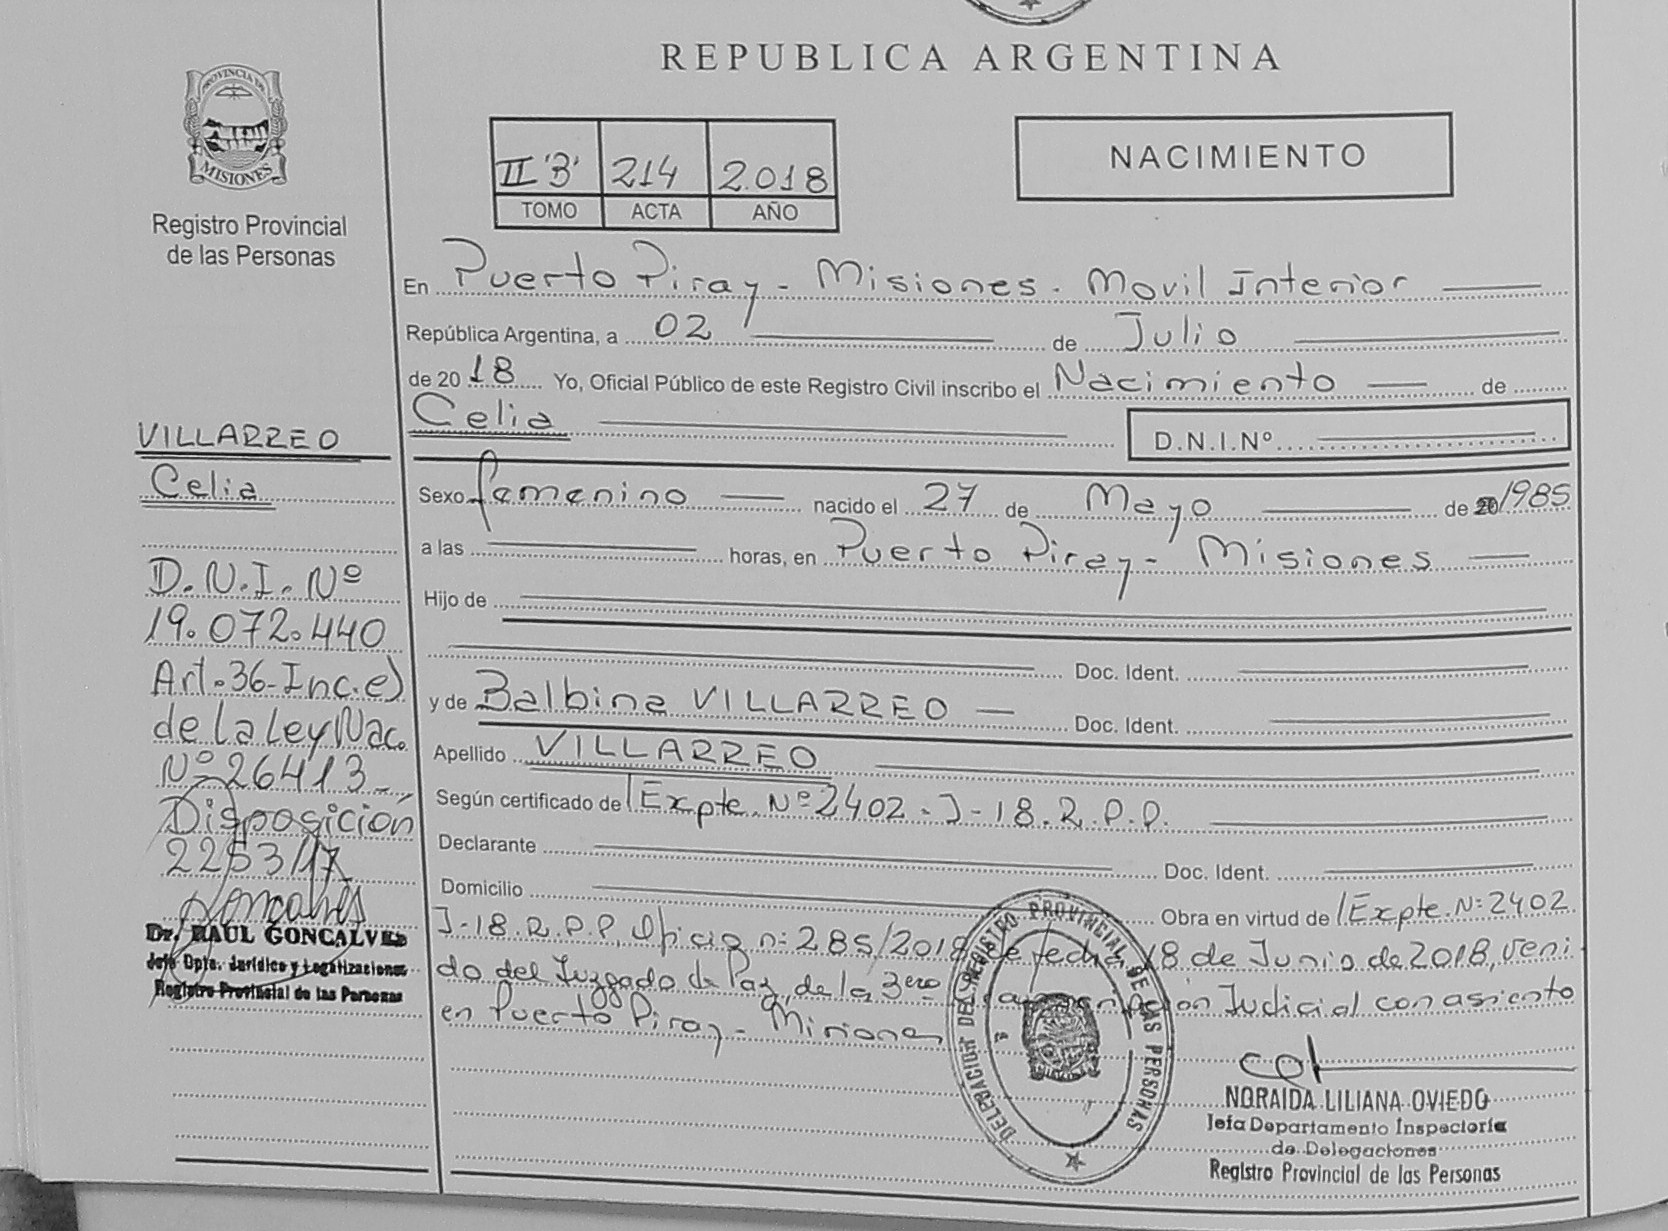 REPUBLICA ARGENTINA
PROVINCIA DE
MISIONES
Registro Provincial
de las Personas
II "B" 214 2.018
TOMO ACTA AÑO
NACIMIENTO
En Puerto Piray - Misiones. Movil Interior
República Argentina, a 02 de Julio
de 2018 Yo, Oficial Público de este Registro Civil inscribo el Nacimiento de
Celia
D.N.I.Nº
Sexo femenino nacido el 27 de Mayo de 20/1985
a las horas, en Puerto Piray - Misiones
Hijo de
Doc. Ident.
y de Balbina VILLARREO Doc. Ident.
Apellido VILLARREO
Según certificado de/Expte. Nº 2402-J-18.R.P.P.
Declarante Doc. Ident.
Domicilio
Obra en virtud de/Expte. Nº 2402
J-18.R.P.P, Oficio nº 285/2018 de fecha 18 de Junio de 2018, veni
do del Juzgado de Paz, de la 3era Judicial con asiento
en Puerto Piray - Misiones
VILLARREO
Celia
D.N.I. Nº
19.072.440
Art. 36-Inc. e)
de la Ley Nac.
Nº 26413-
Disposición
2253/17
Goncalves
Dr. RAUL GONCALVES
Jefe Dpto. Jurídico y Legalizaciones
Registro Provincial de las Personas
DELEGACION DEL REGISTRO PROVINCIAL DE LAS PERSONAS
NORAIDA LILIANA OVIEDO
Jefa Departamento Inspectoría
de Delegaciones
Registro Provincial de las Personas